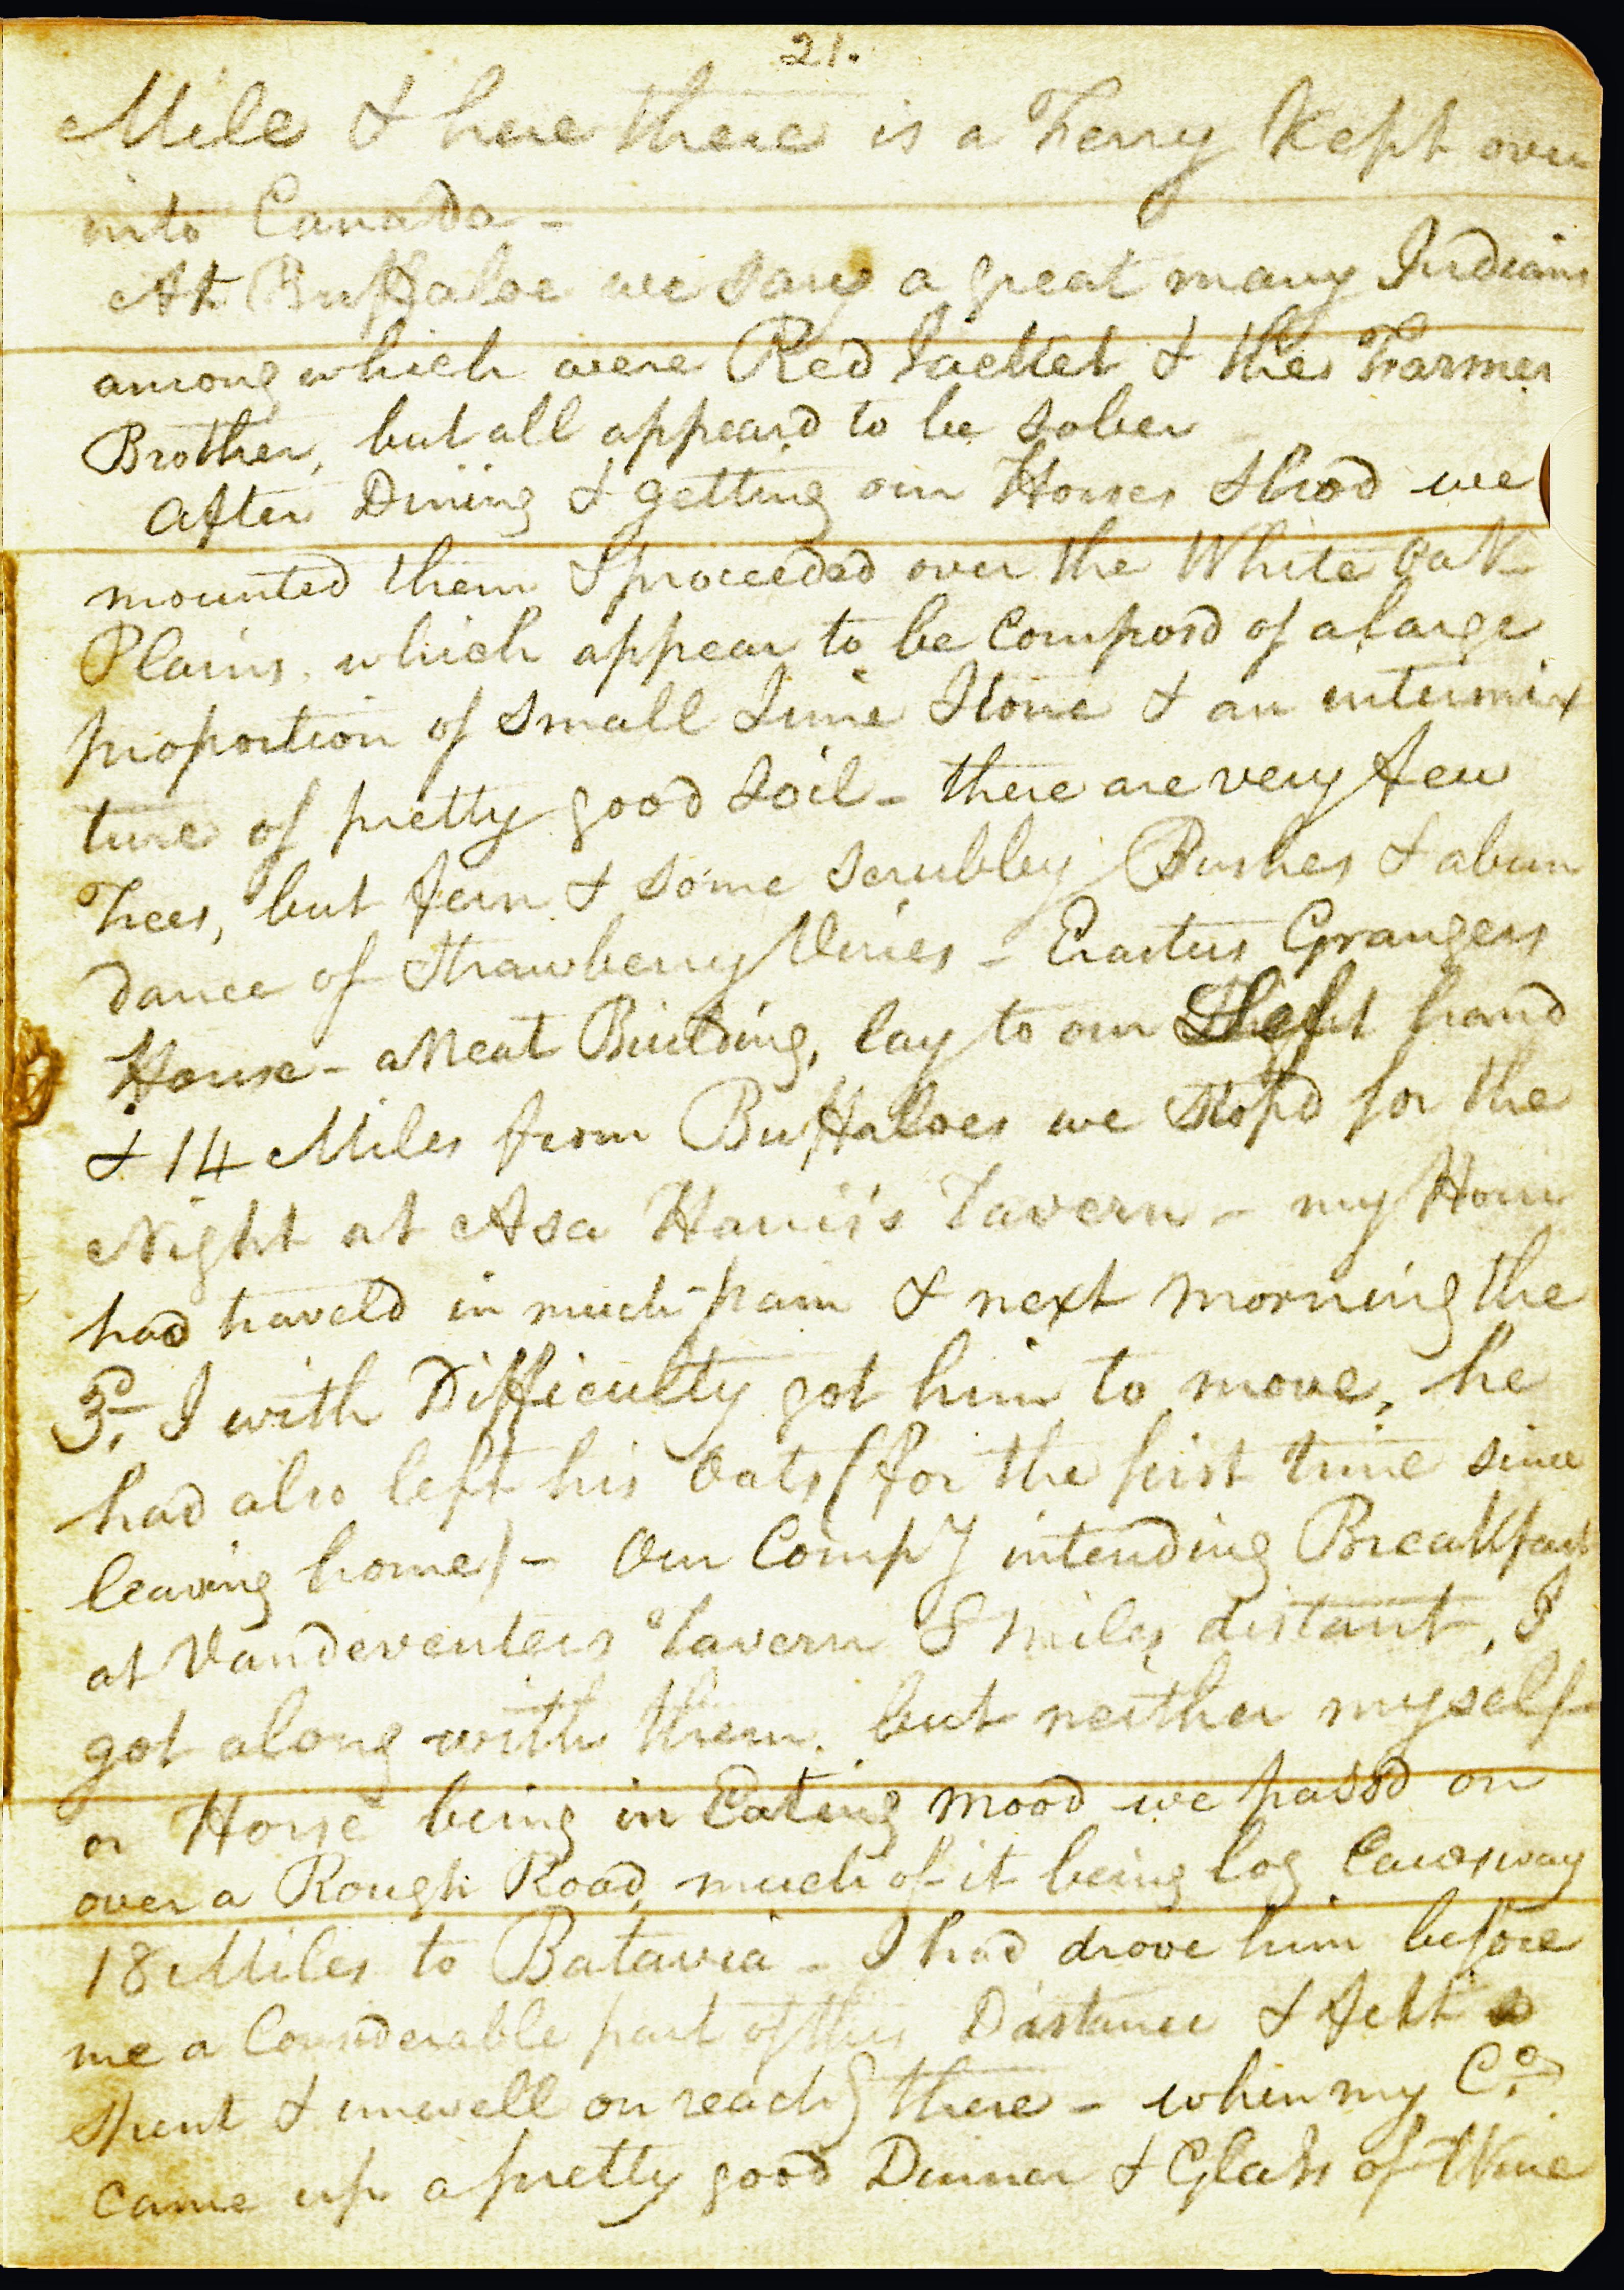 21.
Mile & here there is a Ferry Kept over
into Canada -
At Buffaloe we saw a great many Indians
among which were Red Jacket & the Farmer
Brother, but all appeard to be sober
After Dining & getting our Horses Shod we
mounted them & proceeded over the White Oak
Plains, which appear to be Composd of a large
proportion of small Lime Stone & an intermix
ture of pretty good Soil - there are very few
Trees, but fern & some scrubbey Bushes & abun
dance of Strawberry Vines - Erastus Grangers
House - a Neat Building, lay to our Left hand
& 14 Miles from Buffaloes we Stopd for the
Night at Asa Harris's Tavern - my Horse
had traveld in much pain & next morning the
3d. I with Difficulty got him to move, he
had also left his Oats (for the first time since
leaving home) - Our Compy intending Breakfast
at Vandeventers Tavern 8 miles distant, I
got along with them, but neither myself
or Horse being in Eating mood we passd on
over a Rough Road, much of it being log Causway
18 Miles to Batavia - I had drove him before
me a Considerable part of this Distance & felt
spent & unwell on reachg there - when my Co.
came up a pretty good Dinner & Glass of Wine